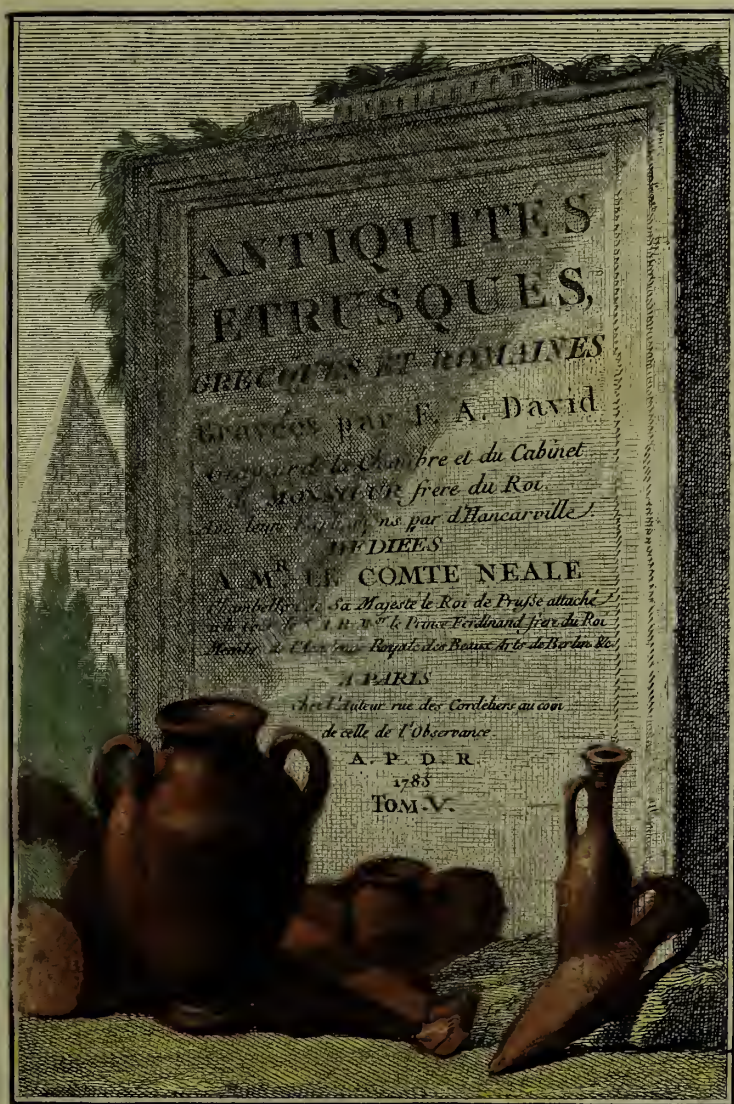 ANTIQUITES
ETRUSQUES,
GRECQUES ET ROMAINES
Gravées par F. A. David
Graveur de la Chambre et du Cabinet
de MONSIEUR frere du Roi.
Avec leurs Explications par d'Hancarville.
DEDIÉES
A MR. LE COMTE NEALE
Chambellan de Sa Majesté le Roi de Prusse attaché
à la Cour de S. A. R. Mgr le Prince Ferdinand frere du Roi
Membre de l'Academie Royale des Beaux Arts de Berlin &c
A PARIS
Chez l'Auteur rue des Cordeliers au coin
de celle de l'Observance.
A. P. D. R.
1785
TOM. V.